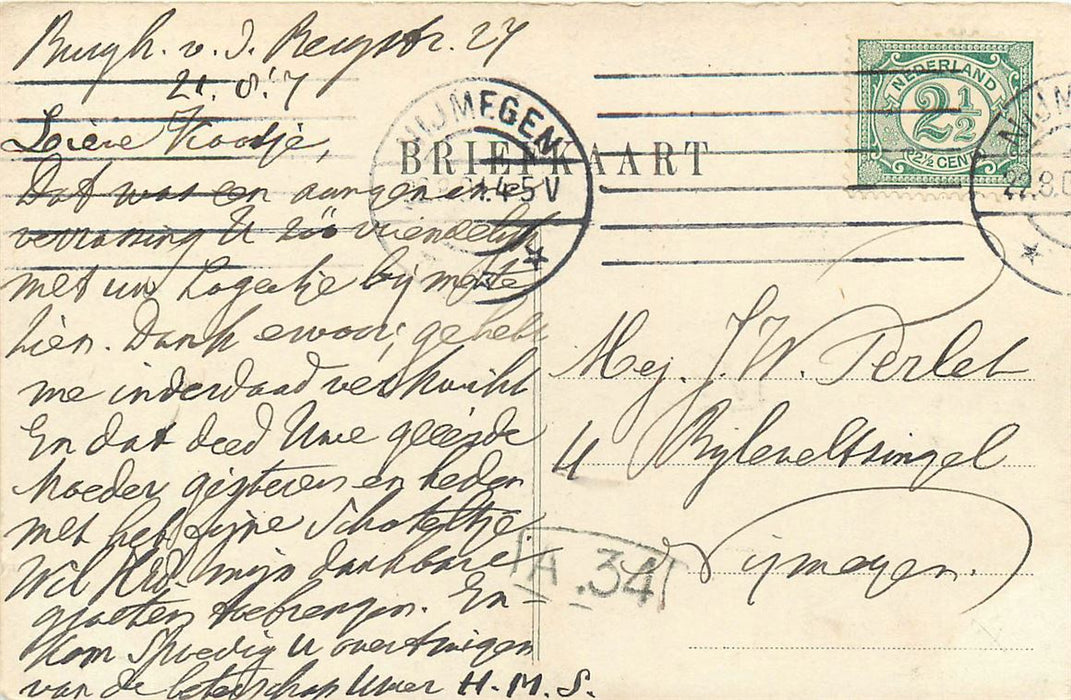 Burgh. v. d. Berghstr. 27
21. 8. 7
NIJMEGEN
4-5 V
BRIEFKAART
NEDERLAND
2½
2½ CENT
NIJM
22.8.0
Lieve Kootje,
Dat was een aangename
verrassing U zóó vriendelijk
met uw Logeetje bij me te
zien. Dank ervoor; ge hebt
me inderdaad verkwikt
En dat deed Uwe geëerde
Moeder gisteren en heden
met het fijne Schoteltje.
Wil HEd. mijn dankbare
groeten toebrengen. En
kom Spoedig U overtuigen
van de beterschap Uwer H. M. S.
Mej. J. W. Perlet
4 Bijleveltsingel
Nijmegen.
A.34